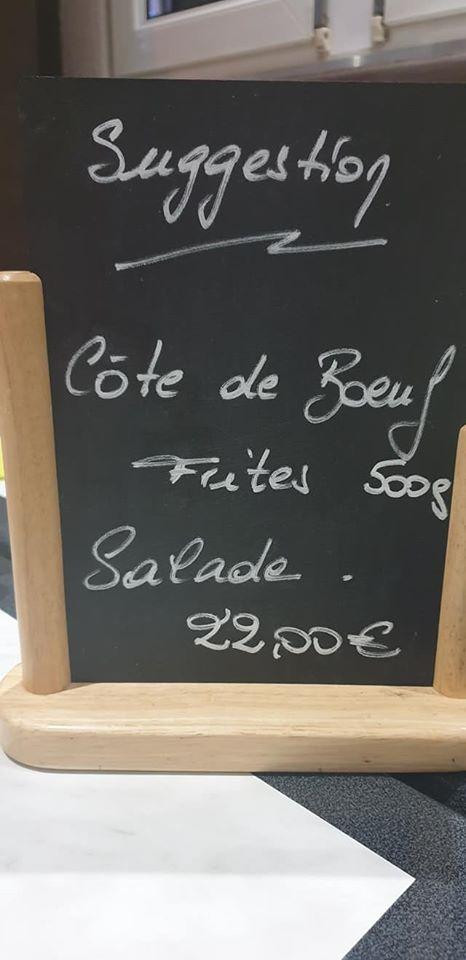 Suggestion
Côte de Boeuf
Frites 500g
Salade.
22,00€